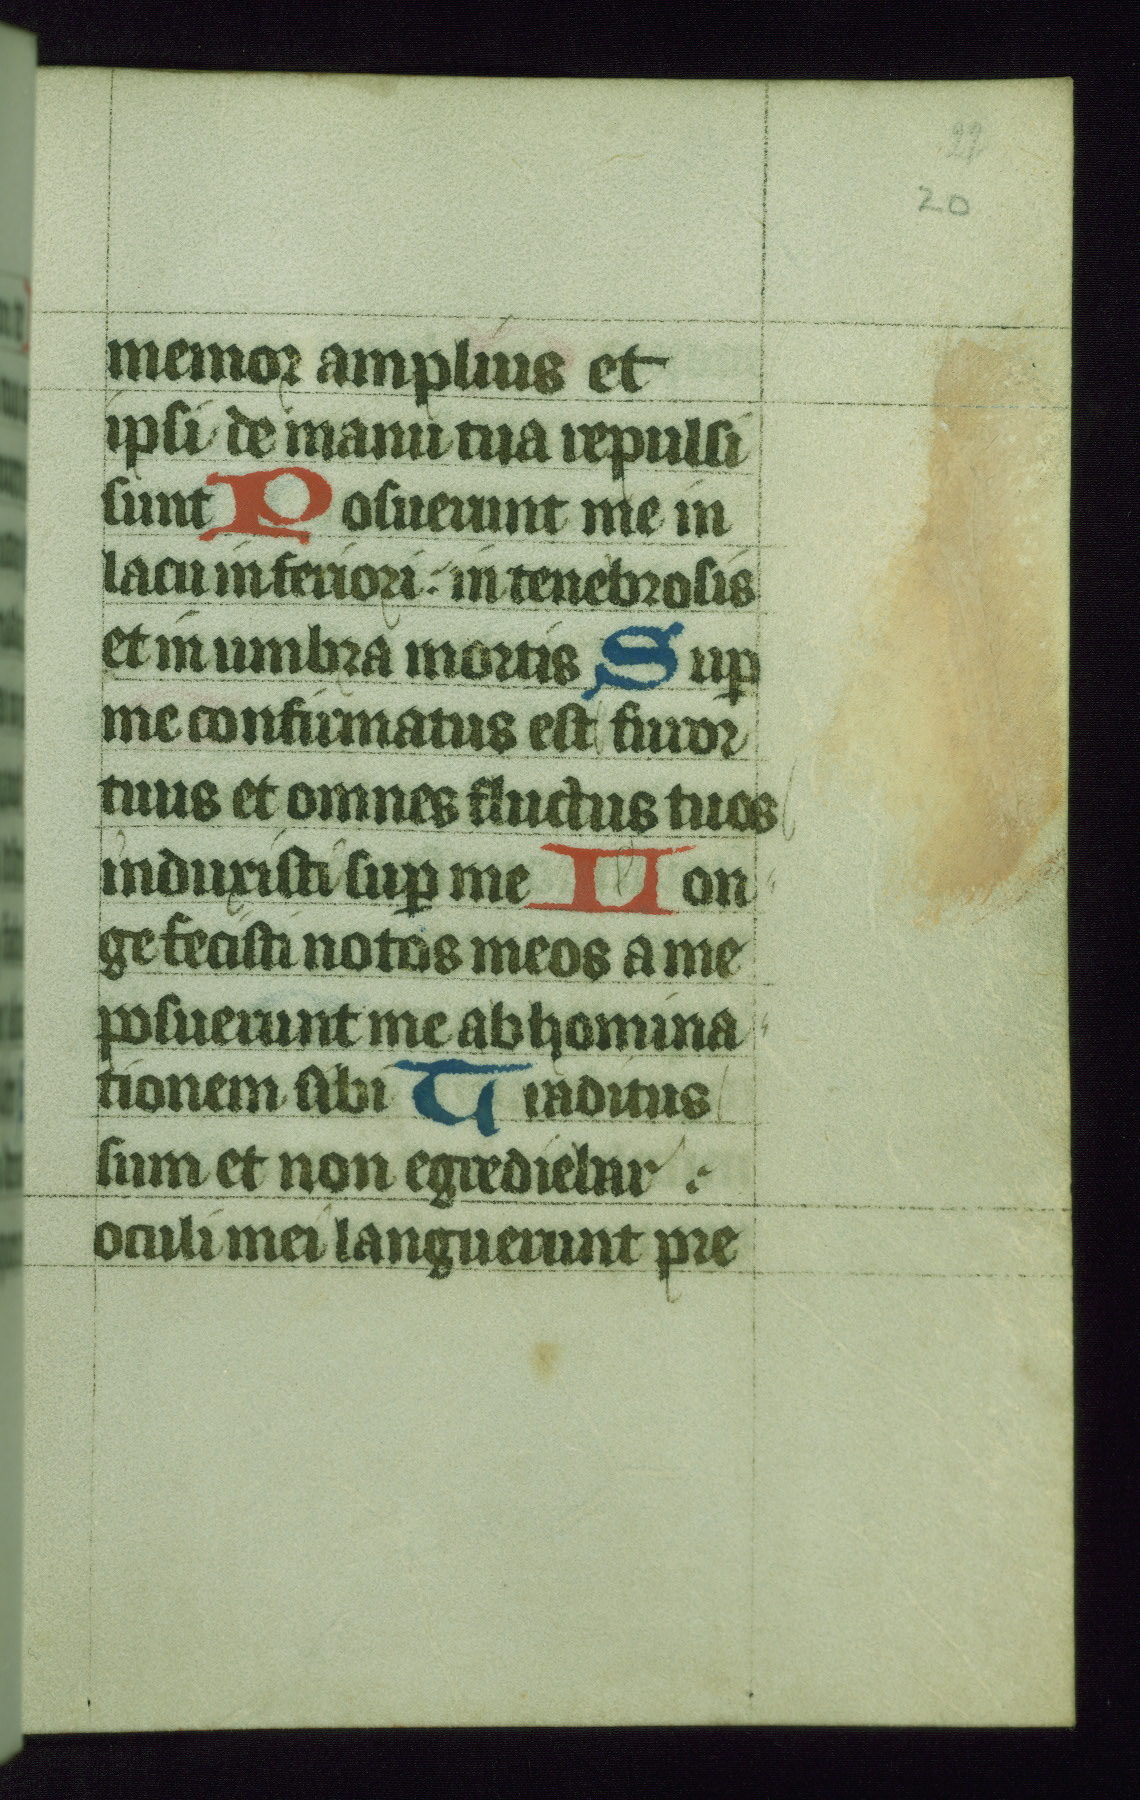 29
20
memor amplius et
ipsi de manu tua repulsi
sunt Posuerunt me in
lacu inferiori : in tenebrosis
et in umbra mortis Sup
me confirmatus est furor
tuus et omnes fluctus tuos
induxisti sup me Lon
ge fecisti notos meos a me
posuerunt me abhomina
tionem sibi Traditus
sum et non egrediebar :
oculi mei languerunt pre